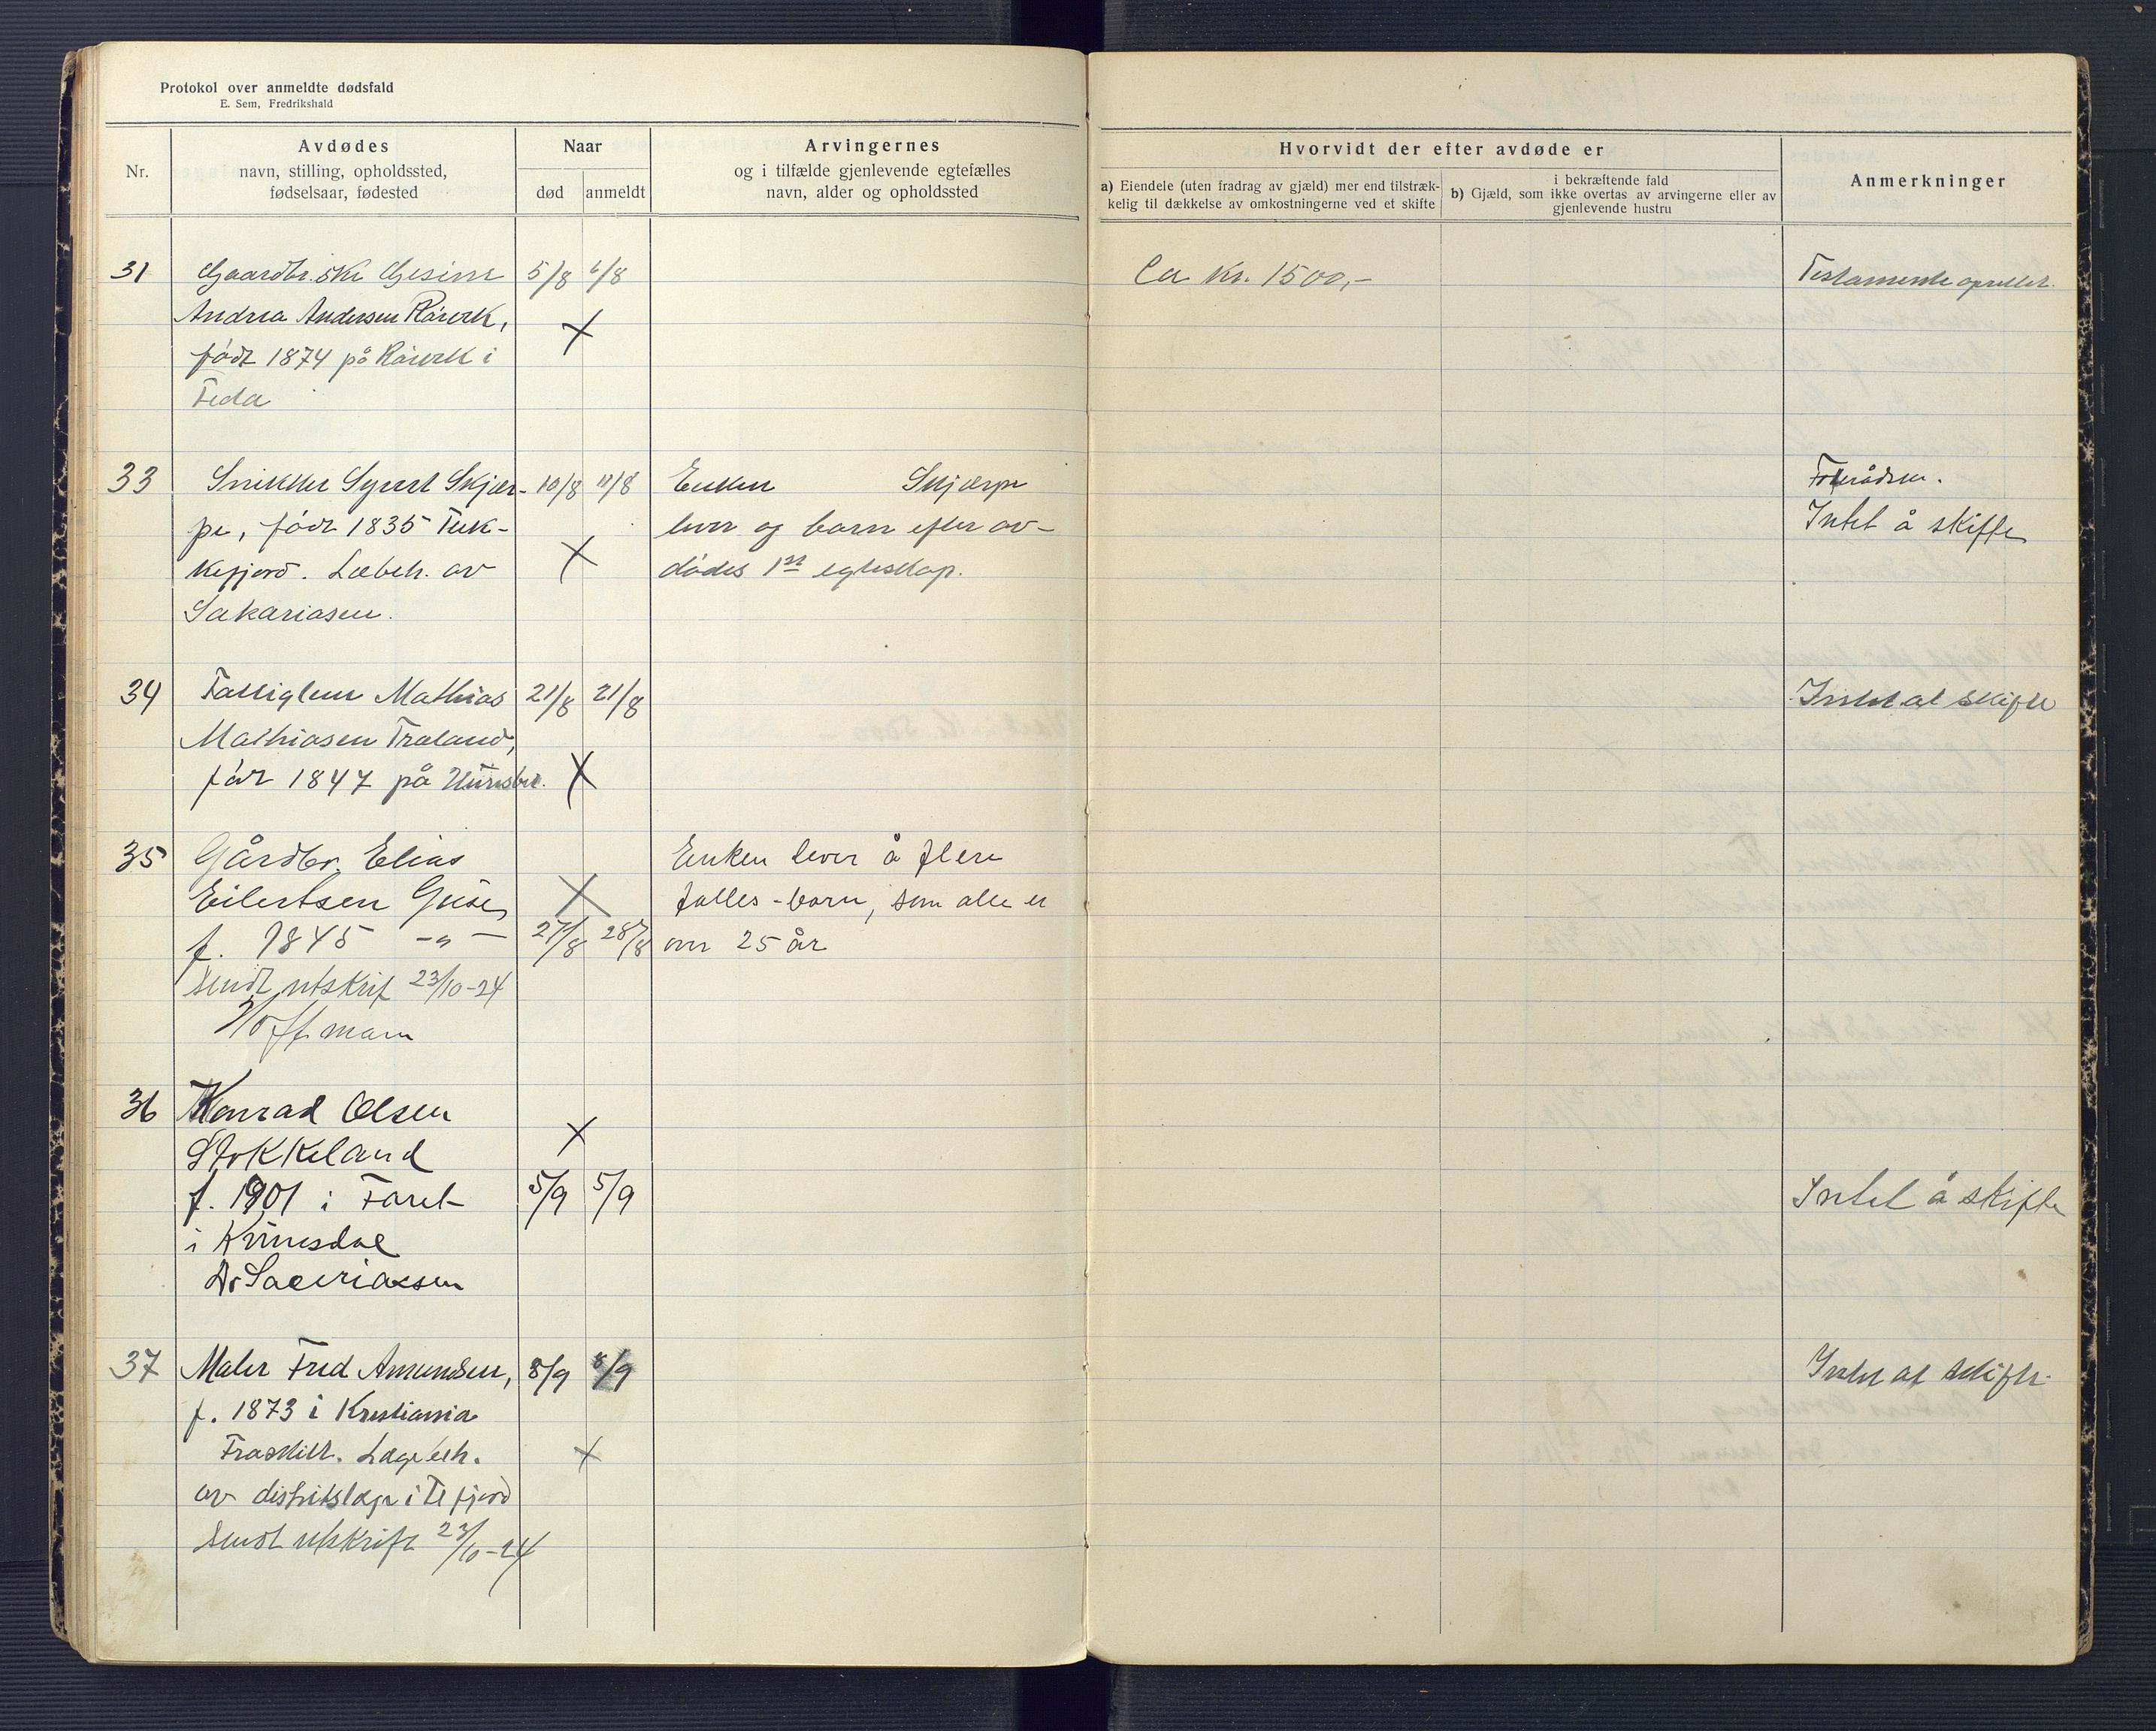 Protokol over anmeldte dødsfald
E. Sem, Fredrikshald
Nr.
Avdødes
navn, stilling, opholdssted,
fødselsaar, fødested
Naar
død
anmeldt
Arvingernes
og i tilfælde gjenlevende egtefælles
navn, alder og opholdssted
Hvorvidt der efter avdøde er
a) Eiendele (uten fradrag av gjæld) mer end tilstræk-
kelig til dækkelse av omkostningerne ved et skifte
i bekræftende fald
b) Gjæld, som ikke overtas av arvingerne eller av
gjenlevende hustru
Anmerkninger
31 Gaardbr. ske Gesine 5/8 6/8 Ca Kr. 1500,- Testamente oprettet.
Andrea Andersen Råverk,
født 1874 på Råverk i
Feda
33 Snikker Syvert Skjær- 10/8 11/8 Enken Skjærpe Forrådsm.
pe, født 1835 Flek- lever og barn efter av- Intet å skifte
kefjord. Læbeh. av dødes 1ste egteskap.
Sakariasen.
34 Fattiglem Mathias 21/8 21/8 Intet at skifte
Mathiasen Træland,
født 1847 på
35 Gårdbr. Elias Enken lever å flere
Eilertsen Gjise falles-barn, som alle er
f. 1845 -"- 27/8 28/8 over 25 år
sendt utskrift 23/10-24
Hoffmann
36 Konrad Olsen
Stokkeland
f. 1901 i Faret 5/9 5/9 Intet å skifte
i Kvinesdal
Dr Sacariassen
37 Maler Fred Amundsen, 8/9 8/9 Intet at skifte.
f. 1873 i Kristiania
Fraskilt. Lægebeh.
av distriktslæge i Flfjord
sendt utskrift 23/10-24